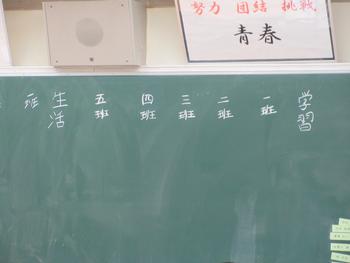 努力 団結 挑戦
青春
学習
一班
二班
三班
四班
五班
生活
一班